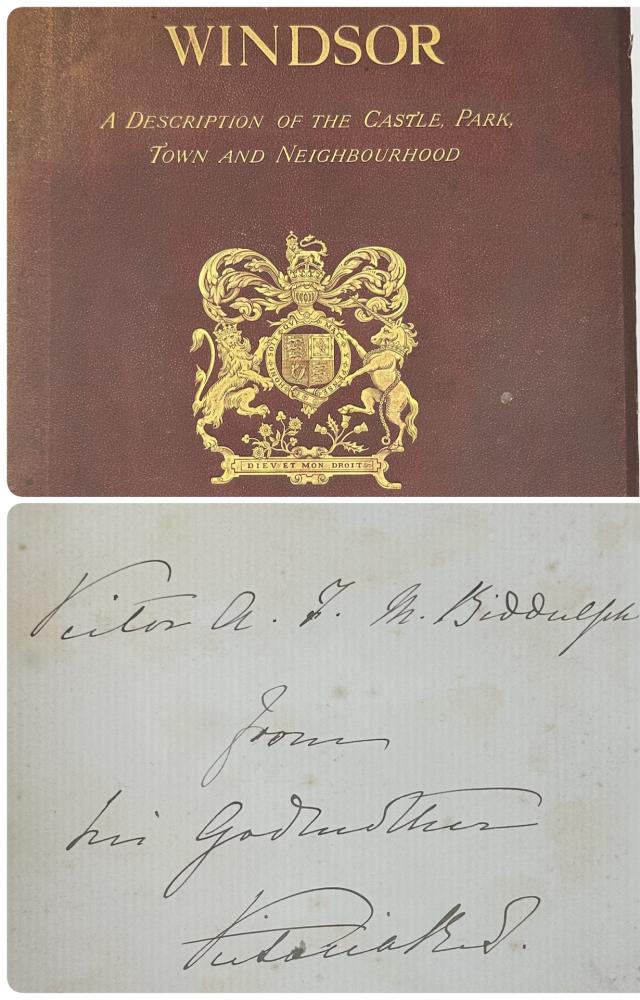 WINDSOR
A DESCRIPTION OF THE CASTLE, PARK,
TOWN AND NEIGHBOURHOOD
HONI SOIT QUI MAL Y PENSE
DIEU ET MON DROIT
Victor A. F. M. Biddulph
from
his Godmother
Victoria R. I.